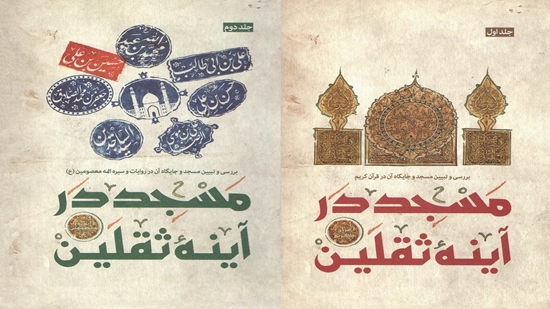 جلد اول
بررسی و تبیین مسجد و جایگاه آن در قرآن کریم
مسجد در
آینهٔ ثقلین
جلد دوم
محمد بن عبدالله
علی بن ابی طالب
حسین بن علی
بررسی و تبیین مسجد و جایگاه آن در روایات و سیره ائمه معصومین (ع)
مسجد در
آینهٔ ثقلین